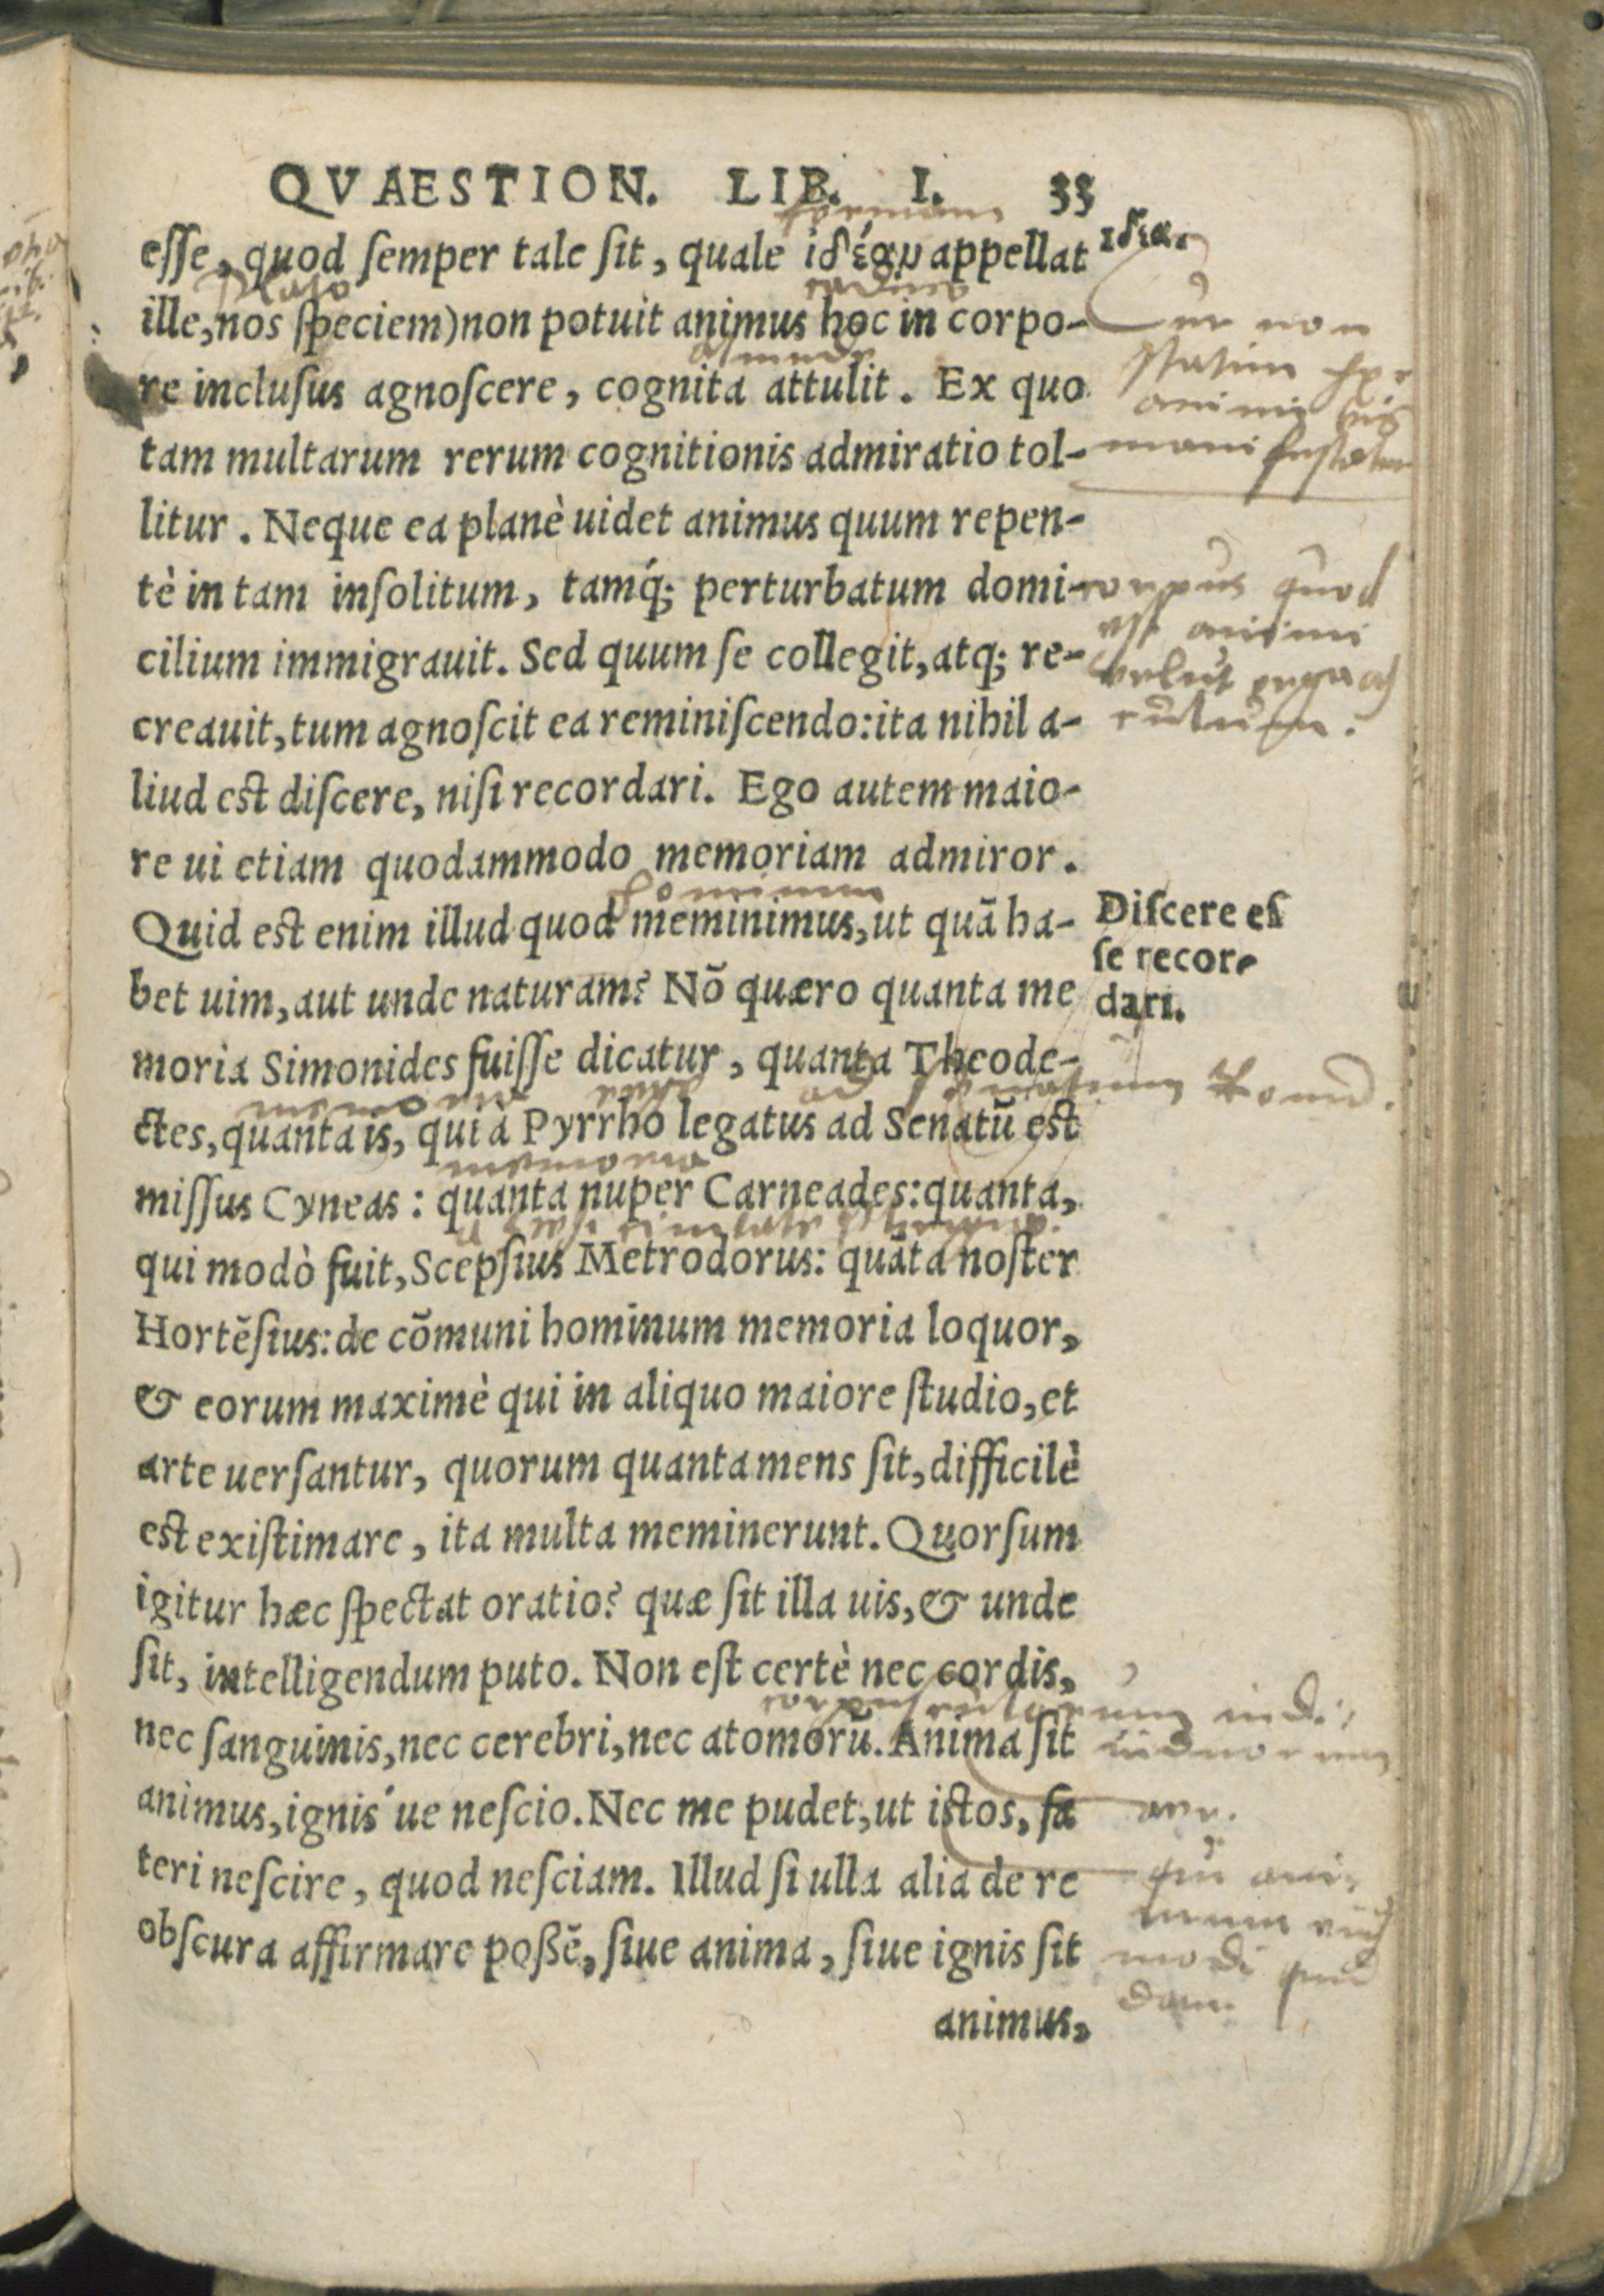 QVAESTION. LIB. I. 33
formam
esse, quod semper tale sit, quale ἰδέαν appellat
Ιδεα.
Plato
ille, nos speciem) non potuit animus hoc in corpo-
re inclusus agnoscere, cognita attulit. Ex quo
tam multarum rerum cognitionis admiratio tol-
litur. Neque ea planè uidet animus quum repen-
tè in tam insolitum, tamq́; perturbatum domi-
cilium immigrauit. Sed quum se collegit, atq; re-
creauit, tum agnoscit ea reminiscendo: ita nihil a-
liud est discere, nisi recordari. Ego autem maio-
re ui etiam quodammodo memoriam admiror.
Quid est enim illud quod meminimus, ut quā ha-
bet uim, aut unde naturam? Nō quæro quanta me
moria Simonides fuisse dicatur, quanta Theode-
ctes, quanta is, qui à Pyrrho legatus ad Senatū est
memoria
missus Cyneas: quanta nuper Carneades: quanta,
qui modò fuit, Scepsius Metrodorus: quāta noster
Hortēsius: de cōmuni hominum memoria loquor,
& eorum maximè qui in aliquo maiore studio, et
arte uersantur, quorum quanta mens sit, difficilè
est existimare, ita multa meminerunt. Quorsum
igitur hæc spectat oratio? quæ sit illa uis, & unde
sit, intelligendum puto. Non est certè nec cordis,
nec sanguinis, nec cerebri, nec atomorū. Anima sit
animus, ignis ue nescio. Nec me pudet, ut istos, fa
teri nescire, quod nesciam. Illud si ulla alia de re
obscura affirmare possē, siue anima, siue ignis sit
animus,
Cur non
statim
animi uis
corpus quod
est animi
velut
Discere es
se recor-
dari.